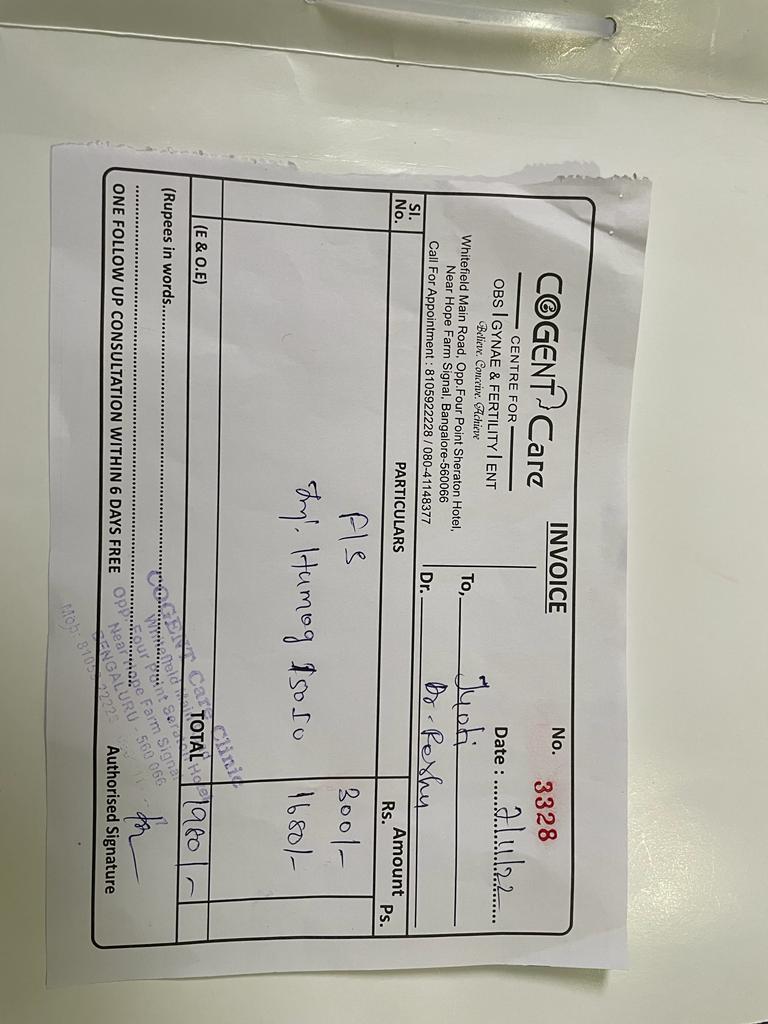 COGENT Care
CENTRE FOR
OBS | GYNAE & FERTILITY | ENT
Believe. Conceive. Achieve
Whitefield Main Road, Opp.Four Point Sheraton Hotel,
Near Hope Farm Signal, Bangalore-560066
Call For Appointment : 8105922228 / 080-41148377
INVOICE
No. 3328
Date : 7/11/22
To, Jyoti
Dr. Dr. Reshu
Sl. No. PARTICULARS Amount Rs. Ps.
F/S 300/-
Inj. Humog 150 IU 1680/-
(E & O.E) TOTAL 1980/-
(Rupees in words
ONE FOLLOW UP CONSULTATION WITHIN 6 DAYS FREE
Authorised Signature
COGENT Care Clinic
Whitefield Main Road
Opp. Four Point Seraton Hotel
Near Hope Farm Signal
BENGALURU - 560 066
Mob: 81059 22228